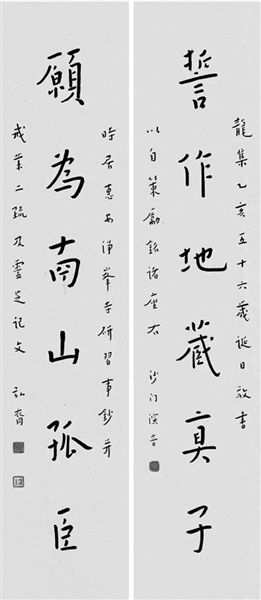 龍集乙亥五十六歲誕日敬書
誓作地藏真子
以自策勵銘諸座右 沙門演音
時居惠安淨峯寺研習事鈔并
願為南山孤臣
戒業二疏及靈芝記文 弘裔